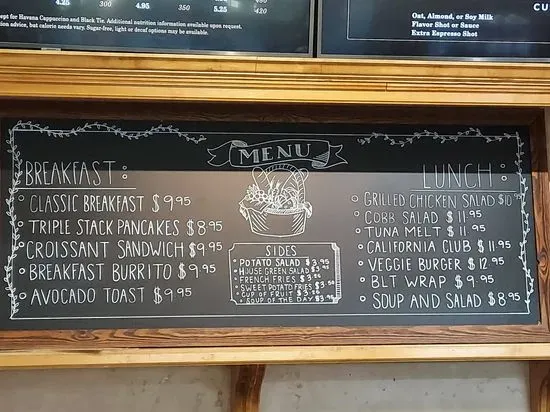 5.25 300 4.95 350 5.25 420
ept for Havana Cappuccino and Black Tie. Additional nutrition information available upon request.
ion advice, but calorie needs vary. Sugar-free, light or decaf options may be available.
CU
Oat, Almond, or Soy Milk
Flavor Shot or Sauce
Extra Espresso Shot
MENU
BREAKFAST:
CLASSIC BREAKFAST $9.95
TRIPLE STACK PANCAKES $8.95
CROISSANT SANDWICH $9.95
BREAKFAST BURRITO $9.95
AVOCADO TOAST $9.95
SIDES
POTATO SALAD $3.95
HOUSE GREEN SALAD $3.95
FRENCH FRIES $3.50
SWEET POTATO FRIES $3.50
CUP OF FRUIT $3.50
SOUP OF THE DAY $3.95
LUNCH:
GRILLED CHICKEN SALAD $10.95
COBB SALAD $11.95
TUNA MELT $11.95
CALIFORNIA CLUB $11.95
VEGGIE BURGER $12.95
BLT WRAP $9.95
SOUP AND SALAD $8.95